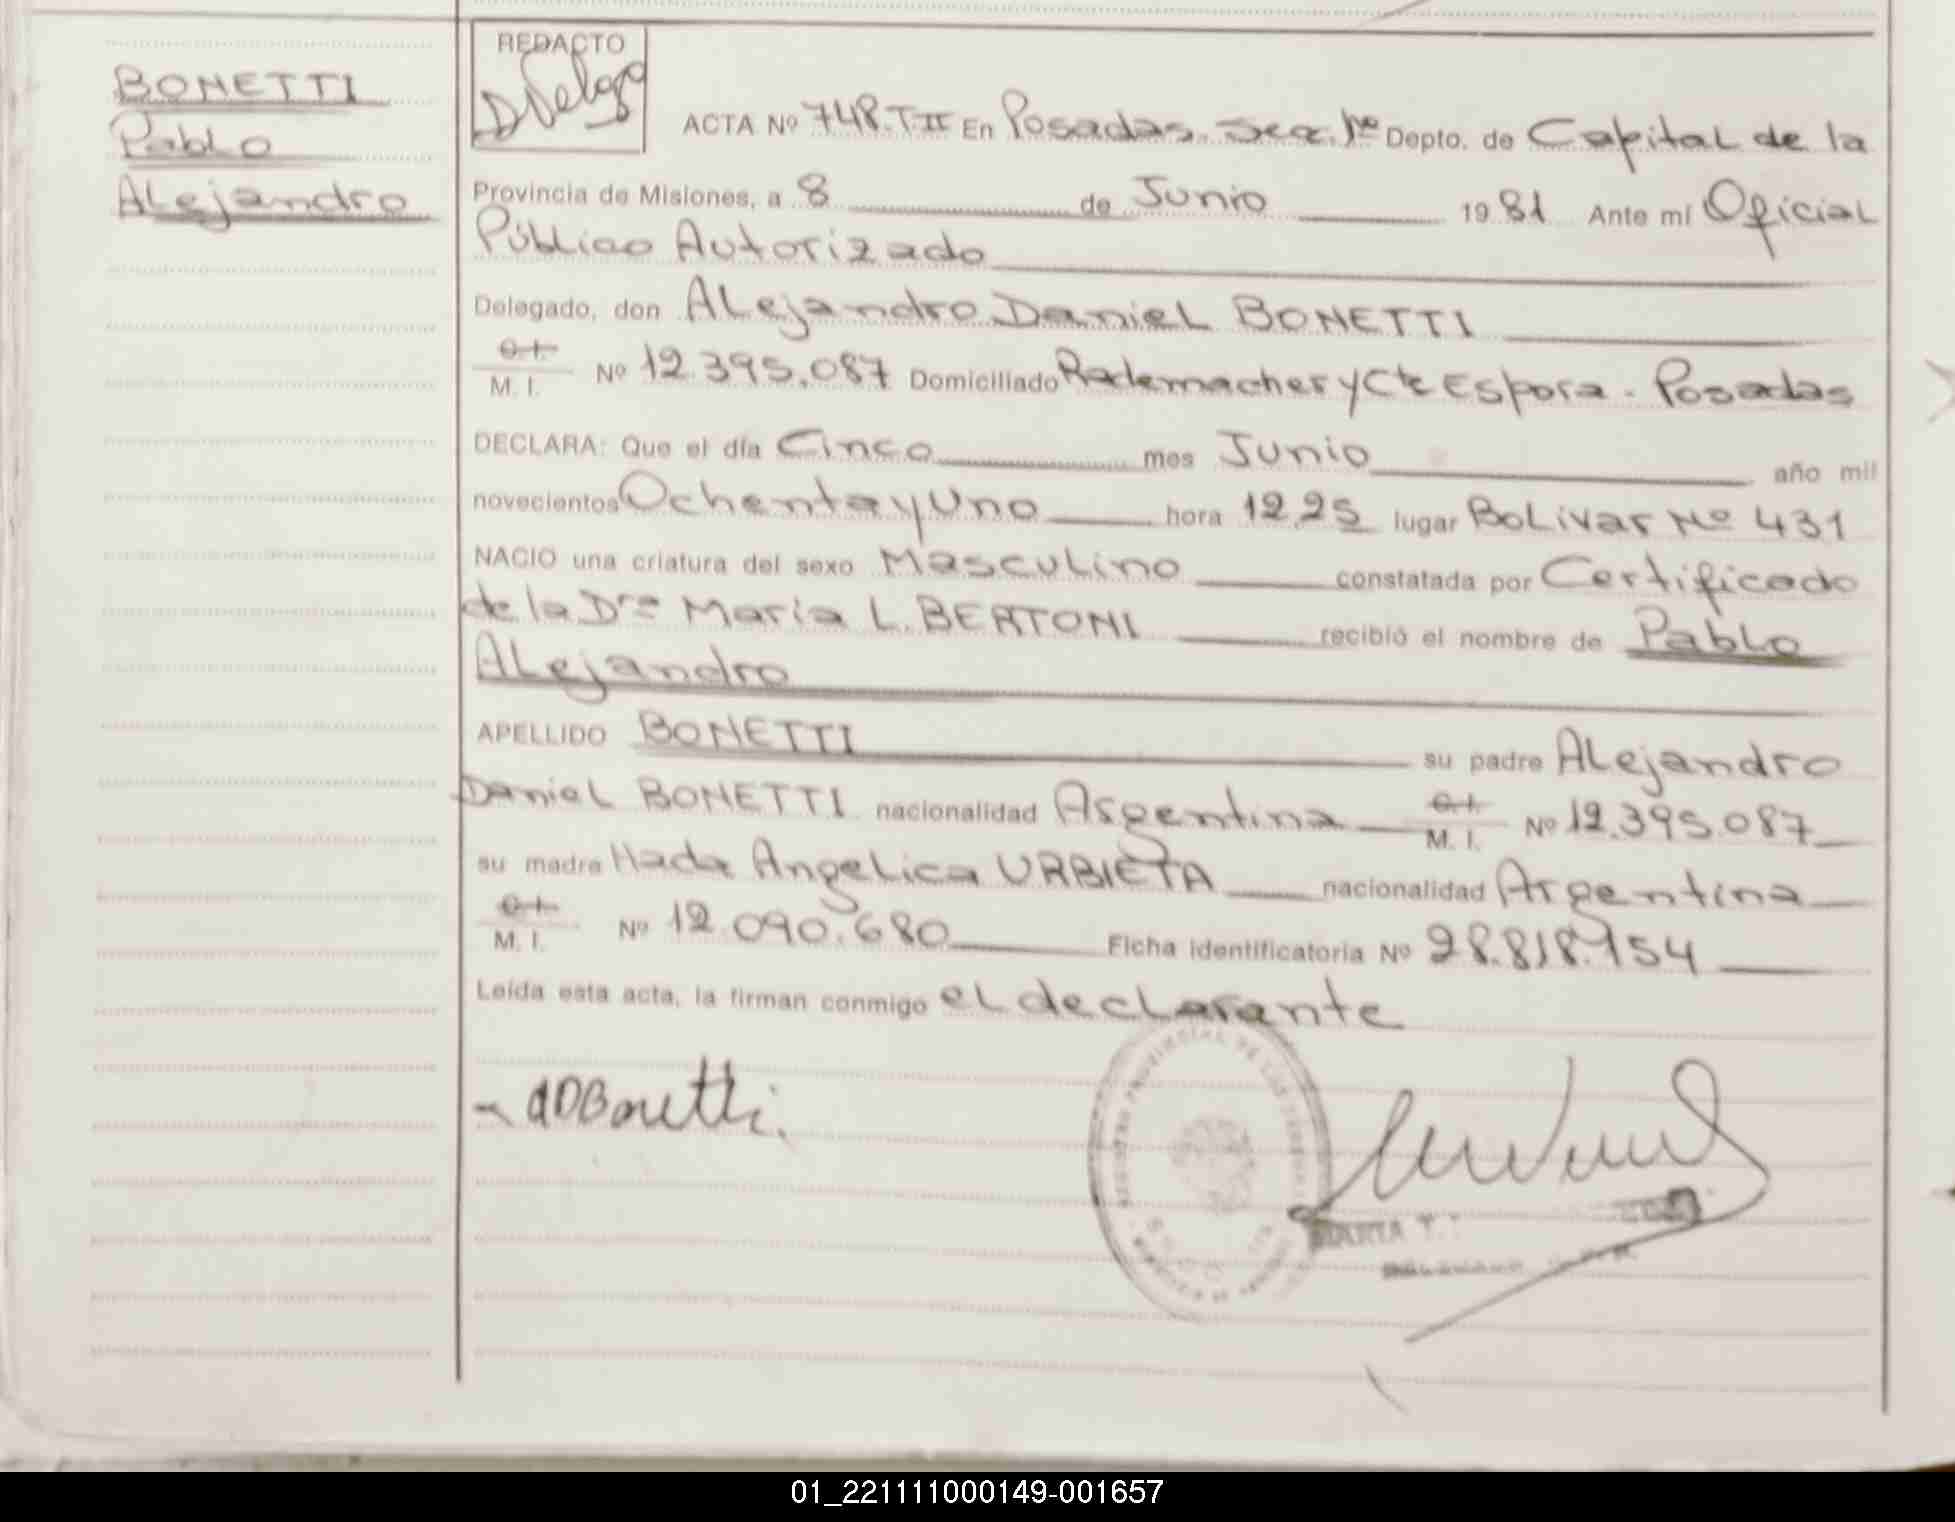 BONETTI
Pablo
Alejandro
REDACTO
ACTA Nº 748.T II En Posadas. Secc. 1ra Depto. de Capital de la
Provincia de Misiones, a 8 de Junio 1981 Ante mí Oficial
Público Autorizado
Delegado, don Alejandro Daniel BONETTI
C.I.
M. I. Nº 12.395.087 Domiciliado Rademacher y Cte Espora - Posadas
DECLARA: Que el día Cinco mes Junio año mil
novecientos Ochenta y Uno hora 12,25 lugar Bolivar Nº 431
NACIO una criatura del sexo Masculino constatada por Certificado
de la Dra María L. BERTONI recibió el nombre de Pablo
Alejandro
APELLIDO BONETTI su padre Alejandro
Daniel BONETTI nacionalidad Argentina C.I. M. I. Nº 12.395.087
su madre Hada Angelica URBIETA nacionalidad Argentina
C.I.
M. I. Nº 12.090.680 Ficha identificatoria Nº 28.818.754
Leída esta acta, la firman conmigo el declarante
ADBonetti.
01_221111000149-001657